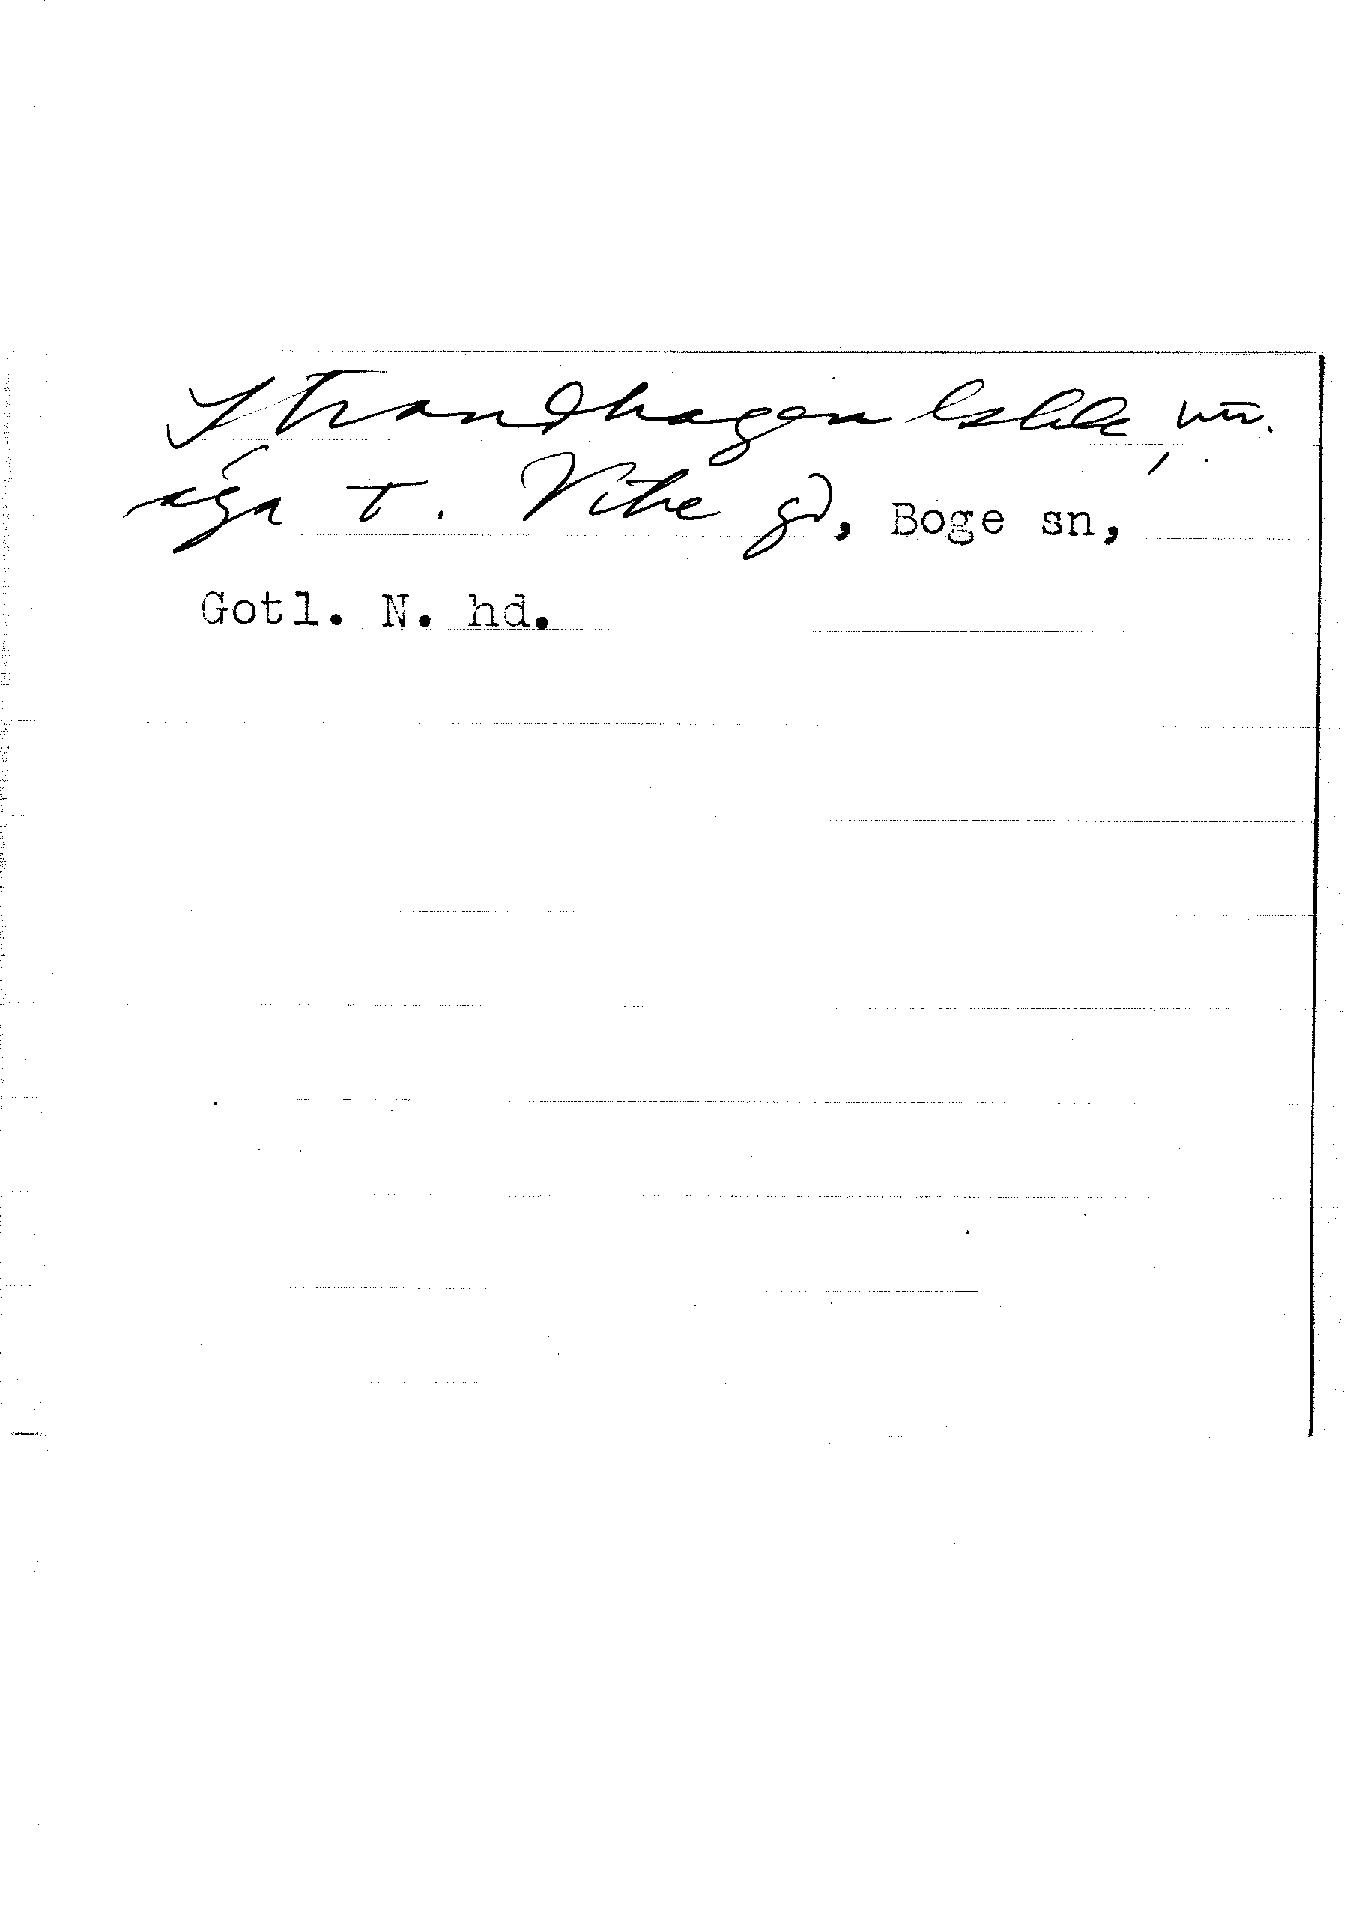 Strandhagen
äga t. Vike gd, Boge sn,
Gotl. N. hd.